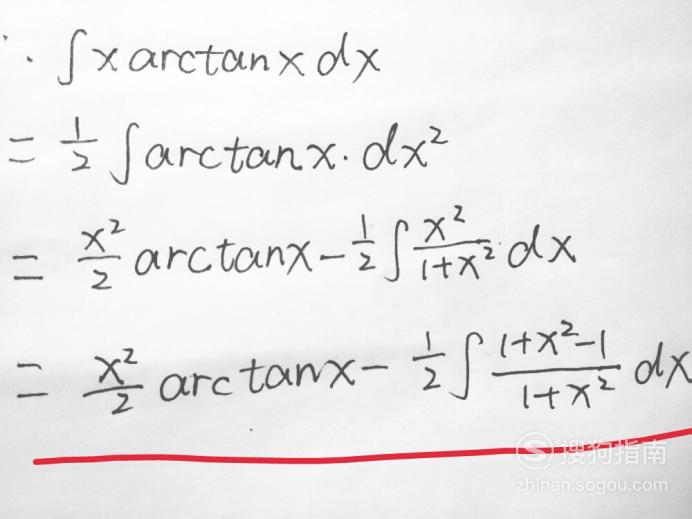 ∴ ∫ x arctan x dx
= 1/2 ∫ arctan x · dx²
= x²/2 arctan x − 1/2 ∫ x²/(1+x²) dx
= x²/2 arctan x − 1/2 ∫ (1+x²−1)/(1+x²) dx
S 搜狗指南
zhinan.sogou.com